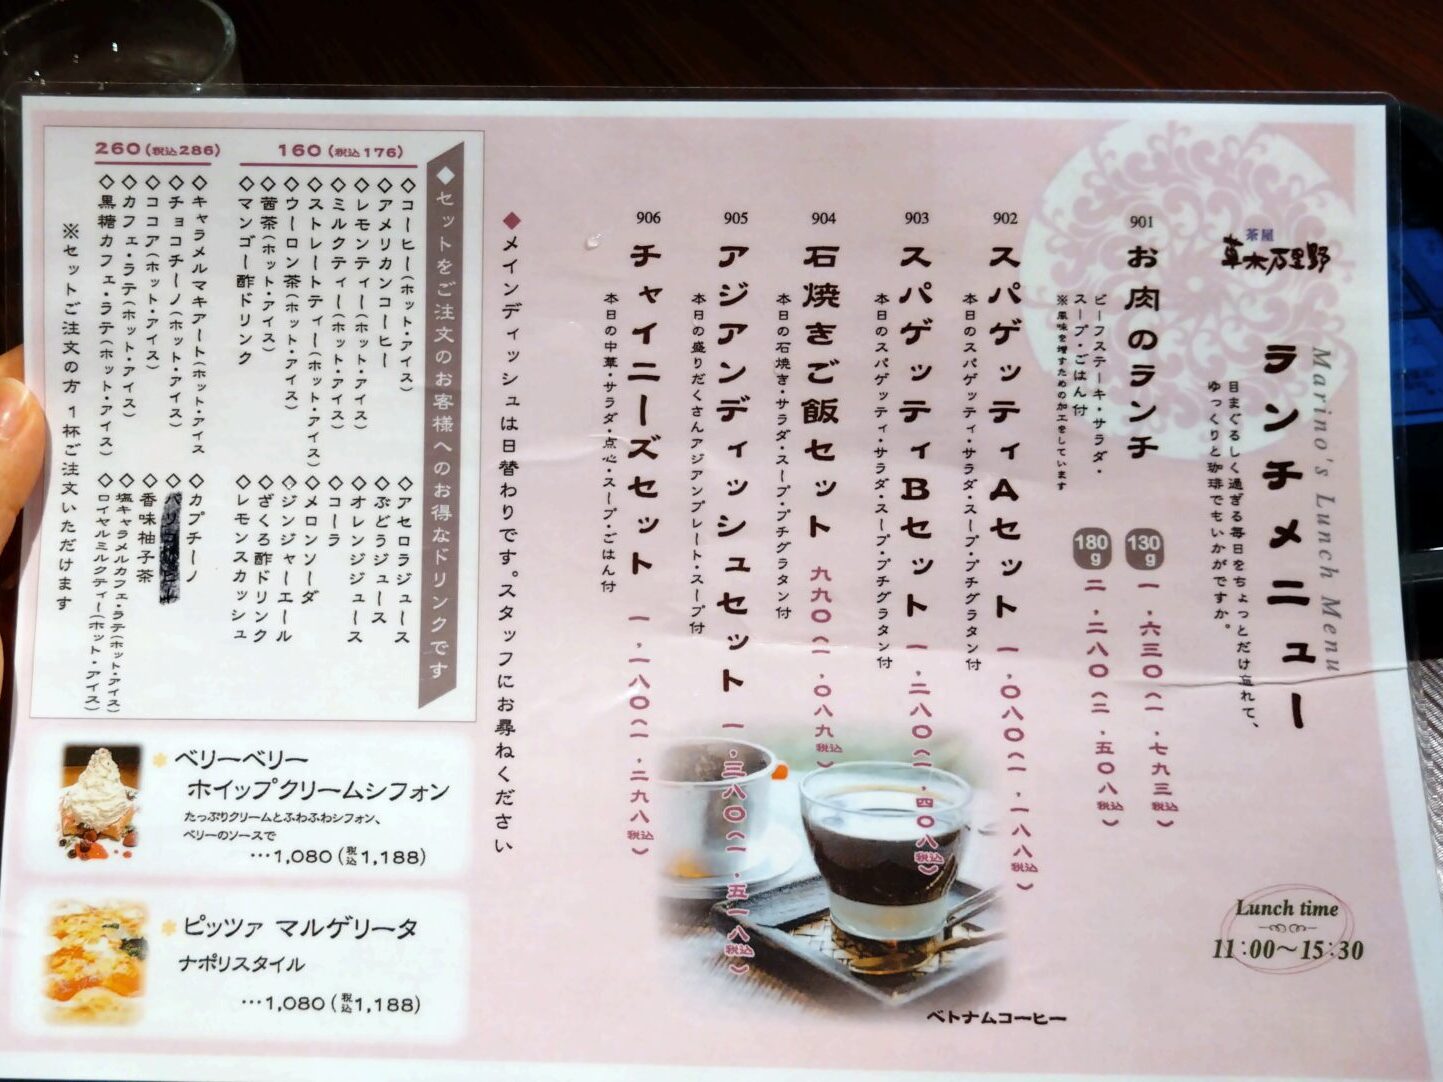 Marino's Lunch Menu
茶屋
草木万里野
ランチメニュー
目まぐるしく過ぎる毎日をちょっとだけ忘れて、
ゆっくりと珈琲でもいかがですか。
901
お肉のランチ
130g
一、六三〇(一、七九三税込)
ビーフステーキ・サラダ・
スープ・ごはん付
180g
二、二八〇(二、五〇八税込)
※風味を増すための加工をしています
902
スパゲッティAセット
一、〇八〇(一、一八八税込)
本日のスパゲッティ・サラダ・スープ・プチグラタン付
903
スパゲッティBセット
一、二八〇(一、四〇八税込)
本日のスパゲッティ・サラダ・スープ・プチグラタン付
904
石焼きご飯セット
九九〇(一、〇八九税込)
本日の石焼き・サラダ・スープ・プチグラタン付
905
アジアンディッシュセット
一、三八〇(一、五一八税込)
本日の盛りだくさんアジアンプレート・スープ付
906
チャイニーズセット
一、一八〇(一、二九八税込)
本日の中華・サラダ・点心・スープ・ごはん付
◆メインディッシュは日替わりです。スタッフにお尋ねください
Lunch time
11:00～15:30
ベトナムコーヒー
◆セットをご注文のお客様へのお得なドリンクです
160(税込176)
◇コーヒー(ホット・アイス)
◇アメリカンコーヒー
◇レモンティー(ホット・アイス)
◇ミルクティー(ホット・アイス)
◇ストレートティー(ホット・アイス)
◇ウーロン茶(ホット・アイス)
◇苦茶(ホット・アイス)
◇マンゴー酢ドリンク
◇アセロラジュース
◇ぶどうジュース
◇オレンジジュース
◇コーラ
◇メロンソーダ
◇ジンジャーエール
◇ざくろ酢ドリンク
◇レモンスカッシュ
260(税込286)
◇キャラメルマキアート(ホット・アイス
◇チョコチーノ(ホット・アイス)
◇ココア(ホット・アイス)
◇カフェ・ラテ(ホット・アイス)
◇黒糖カフェ・ラテ(ホット・アイス)
◇カプチーノ
◇香味柚子茶
◇塩キャラメルカフェ・ラテ(ホット・アイス)
◇ロイヤルミルクティー(ホット・アイス)
※セットご注文の方1杯ご注文いただけます
ベリーベリー
ホイップクリームシフォン
たっぷりクリームとふわふわシフォン、
ベリーのソースで
…1,080(税込1,188)
ピッツァ マルゲリータ
ナポリスタイル
…1,080(税込1,188)